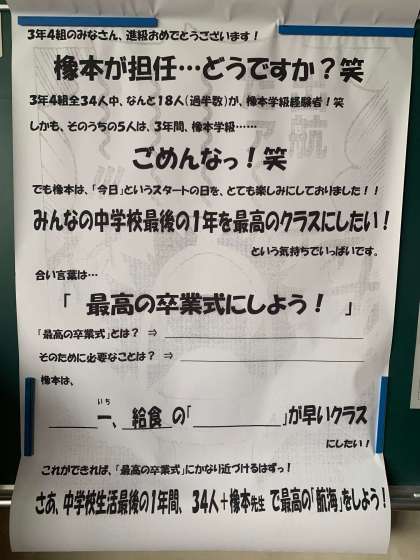 3年4組のみなさん、進級おめでとうございます！
橡本が担任…どうですか？笑
3年4組全34人中、なんと18人(過半数)が、橡本学級経験者！笑
しかも、そのうちの5人は、3年間、橡本学級……
ごめんなっ！笑
でも橡本は、「今日」というスタートの日を、とても楽しみにしておりました！！
みんなの中学校最後の1年を最高のクラスにしたい！
という気持ちでいっぱいです。
合い言葉は…
「 最高の卒業式にしよう！ 」
「最高の卒業式」とは？ ⇒
そのために必要なことは？ ⇒
橡本は、
いち
一、 給食 の「 」が早いクラス
にしたい！
これができれば、「最高の卒業式」にかなり近づけるはずっ！
さあ、中学校生活最後の1年間、34人＋橡本先生 で最高の「航海」をしよう！